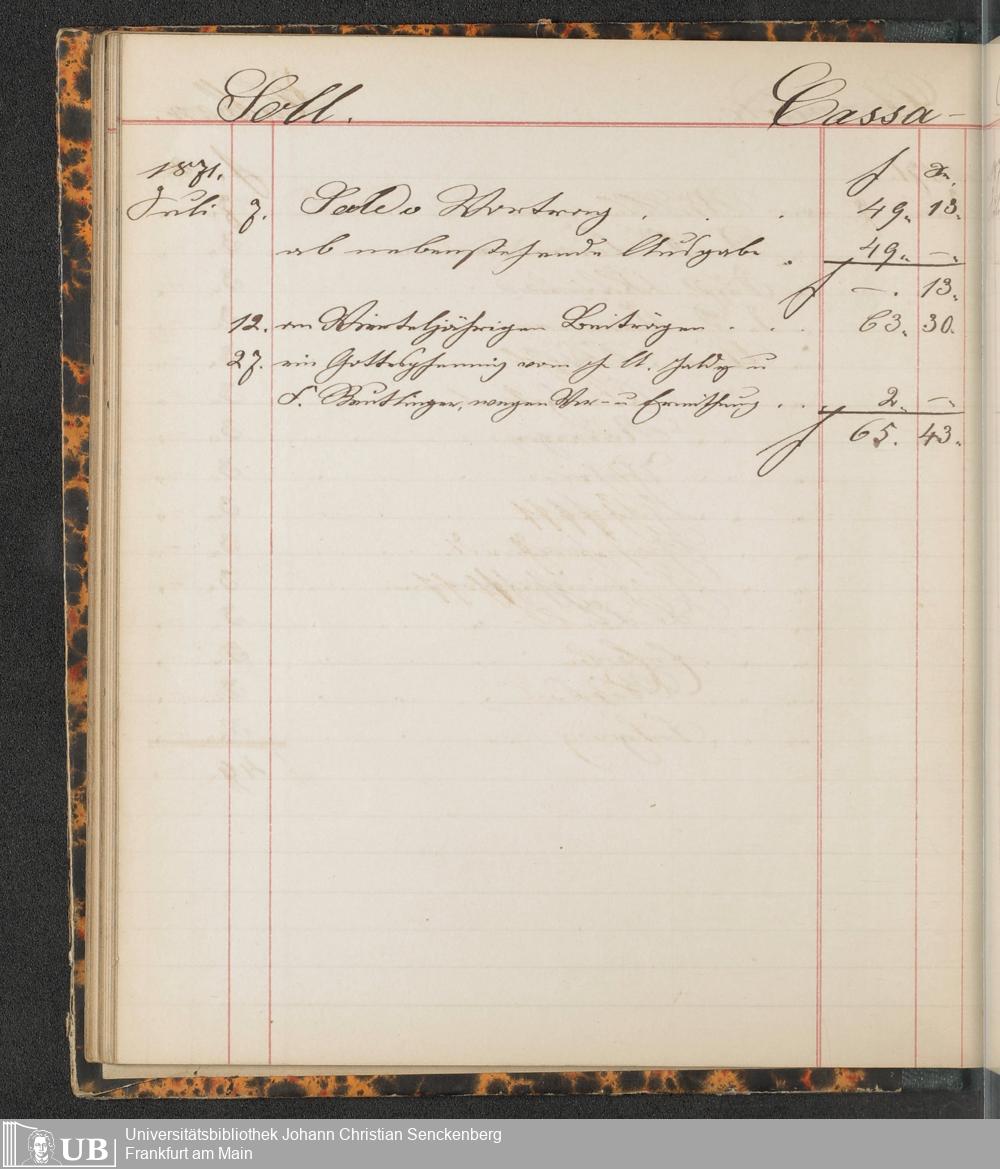 Soll. Cassa
1871. f Xr.
Juli 7. Saldo Vortrag . . . 49. 13.
ab nebenstehende Ausgabe . 49. —.
f —. 13.
12. an Vierteljährigen Beiträgen . . . 63. 30.
27. ein Gottespfennig vom u
F. Reutlinger, wegen Ver- u Ermithung . . 2. —.
f 65. 43.
UB Universitätsbibliothek Johann Christian Senckenberg
Frankfurt am Main